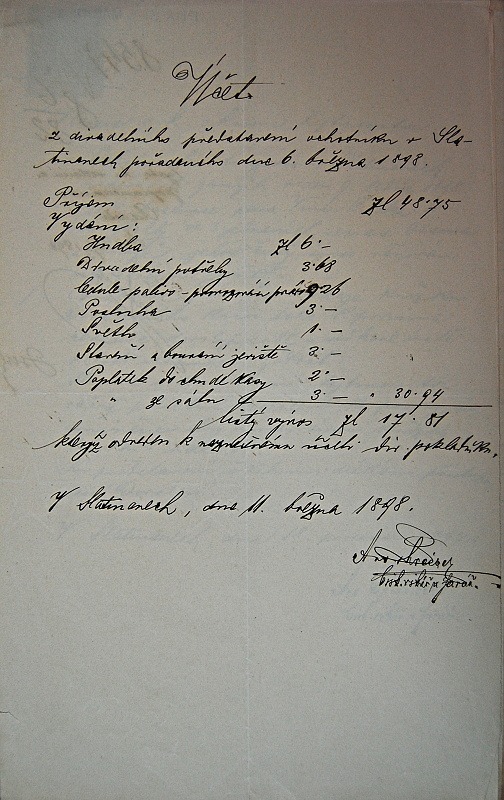 Účet
z divadelního představení ochotníků v Sla-
tinanech pořádaného dne 6. března 1898.
Příjem zl 48·75
Vydání:
Hudba zl 6·—
Divadelní potřeby 3·68
Cedule - palivo - 9·26
Posluha 3·—
Světlo 1·—
Stavění a bourání jeviště 3·—
Poplatek do chudé kasy 2·—
" ze sálu 3·— " 30·94
čistý výnos zl 17·81
kterýž odveden k účeli div. pokladníku.
V Slatinanech, dne 11. března 1898.